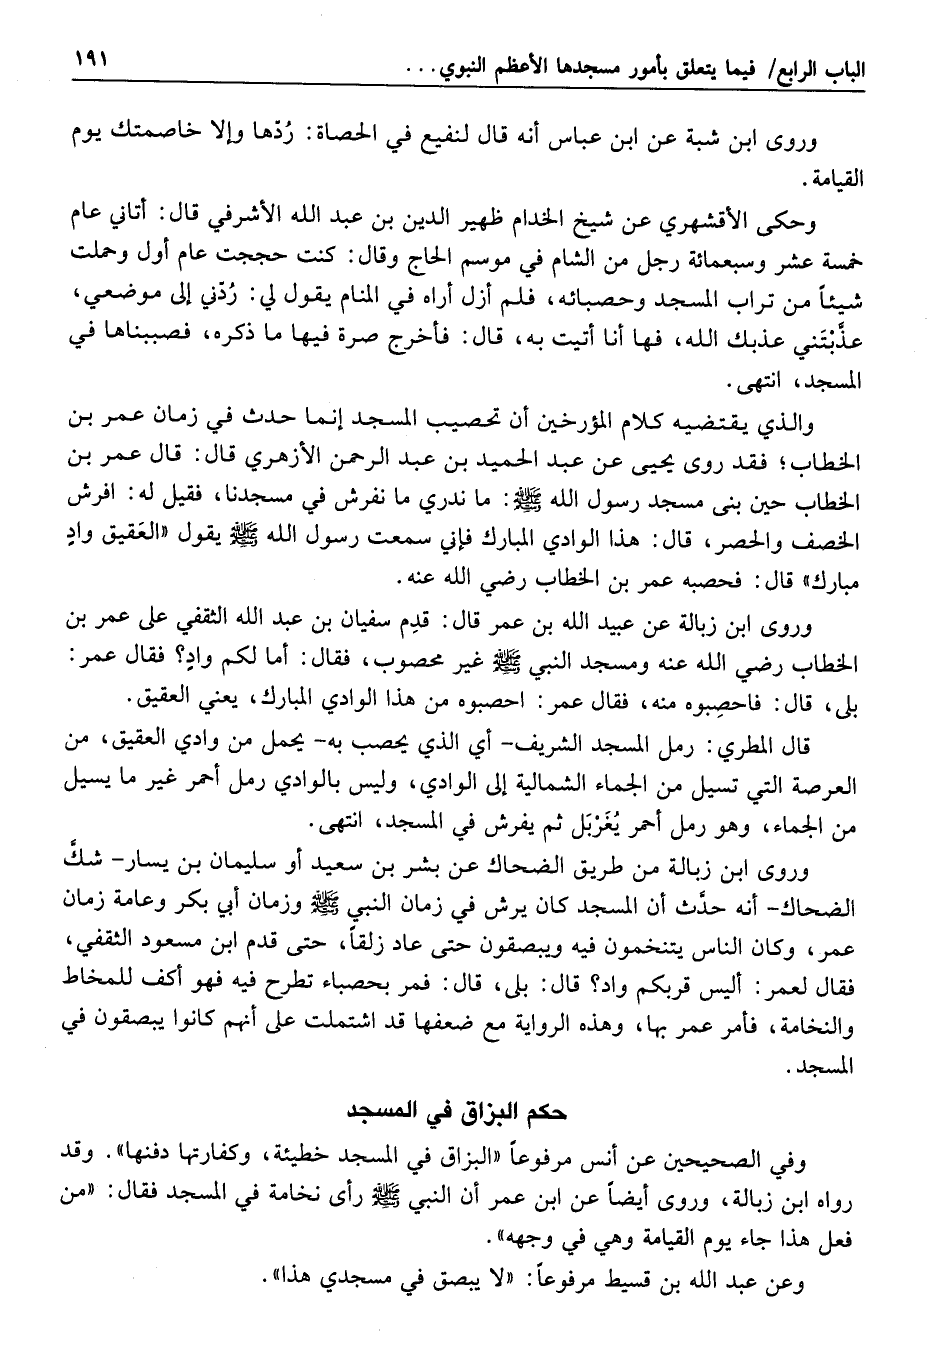 الباب الرابع/ فيما يتعلق بأمور مسجدها الأعظم النبوي . . . ١٩١
وروى ابن شبة عن ابن عباس أنه قال لنفيع في الحصاة: رُدّها وإلا خاصمتك يوم
القيامة.
وحكى الأقشهري عن شيخ الخدام ظهير الدين بن عبد الله الأشرفي قال: أتاني عام
خمسة عشر وسبعمائة رجل من الشام في موسم الحاج وقال: كنت حججت عام أول وحملت
شيئاً من تراب المسجد وحصبائه، فلم أزل أراه في المنام يقول لي: رُدّني إلى موضعي،
عذَّبْتَني عذبك الله، فها أنا أتيت به، قال: فأخرج صرة فيها ما ذكره، فصببناها في
المسجد، انتهى.
والذي يقتضيه كلام المؤرخين أن تحصيب المسجد إنما حدث في زمان عمر بن
الخطاب؛ فقد روى يحيى عن عبد الحميد بن عبد الرحمن الأزهري قال: قال عمر بن
الخطاب حين بنى مسجد رسول الله ﷺ: ما ندري ما نفرش في مسجدنا، فقيل له: افرش
الخصف والحصر، قال: هذا الوادي المبارك فإني سمعت رسول الله ﷺ يقول «العَقيق وادٍ
مبارك» قال: فحصبه عمر بن الخطاب رضي الله عنه.
وروى ابن زبالة عن عبيد الله بن عمر قال: قدِم سفيان بن عبد الله الثقفي على عمر بن
الخطاب رضي الله عنه ومسجد النبي ﷺ غير محصوب، فقال: أما لكم وادٍ؟ فقال عمر:
بلى، قال: فاحصِبوه منه، فقال عمر: احصبوه من هذا الوادي المبارك، يعني العقيق.
قال المطري: رمل المسجد الشريف- أي الذي يحصب به- يحمل من وادي العقيق، من
العرصة التي تسيل من الجماء الشمالية إلى الوادي، وليس بالوادي رمل أحمر غير ما يسيل
من الجماء، وهو رمل أحمر يُغَرْبَل ثم يفرش في المسجد، انتهى.
وروى ابن زبالة من طريق الضحاك عن بشر بن سعيد أو سليمان بن يسار- شكَّ
الضحاك- أنه حدَّث أن المسجد كان يرش في زمان النبي ﷺ وزمان أبي بكر وعامة زمان
عمر، وكان الناس يتنخمون فيه ويبصقون حتى عاد زلقاً، حتى قدم ابن مسعود الثقفي،
فقال لعمر: أليس قربكم واد؟ قال: بلى، قال: فمر بحصباء تطرح فيه فهو أكف للمخاط
والنخامة، فأمر عمر بها، وهذه الرواية مع ضعفها قد اشتملت على أنهم كانوا يبصقون في
المسجد.
حكم البزاق في المسجد
وفي الصحيحين عن أنس مرفوعاً «البزاق في المسجد خطيئة، وكفارتها دفنها». وقد
رواه ابن زبالة، وروى أيضاً عن ابن عمر أن النبي ﷺ رأى نخامة في المسجد فقال: «من
فعل هذا جاء يوم القيامة وهي في وجهه».
وعن عبد الله بن قسيط مرفوعاً: «لا يبصق في مسجدي هذا».